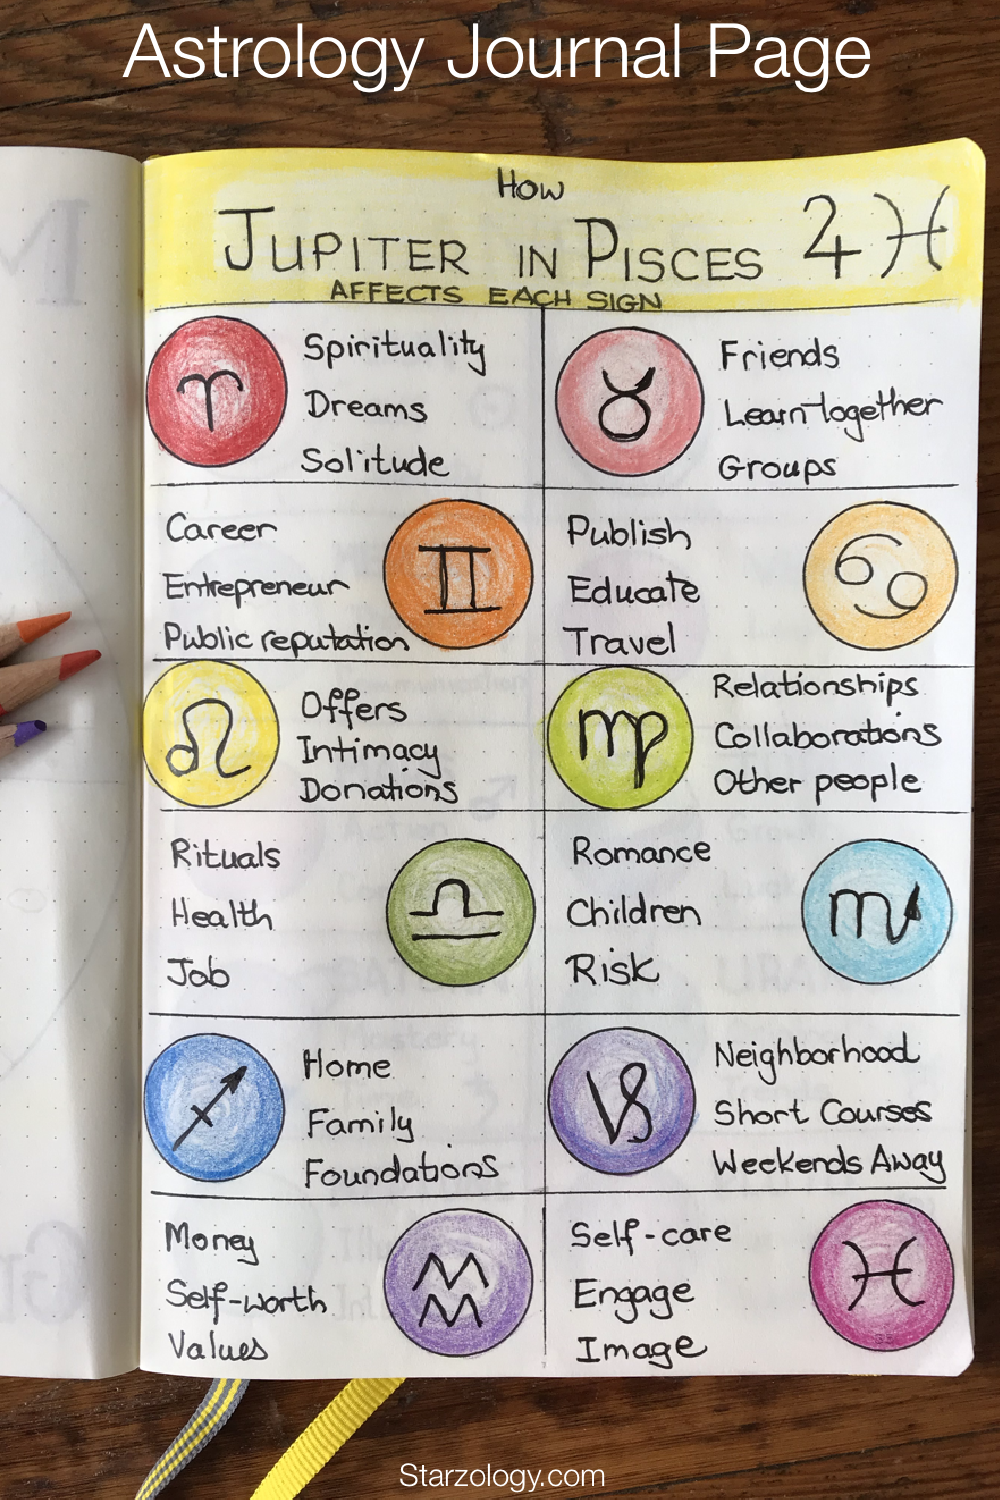 Astrology Journal Page
How
JUPITER IN PISCES ♃ ♓
AFFECTS EACH SIGN
♈
Spirituality
Dreams
Solitude
♉
Friends
Learn together
Groups
Career
Entrepreneur
Public reputation
♊
Publish
Educate
Travel
♋
♌
Offers
Intimacy
Donations
♍
Relationships
Collaborations
Other people
Rituals
Health
Job
♎
Romance
Children
Risk
♏
♐
Home
Family
Foundations
♑
Neighborhood
Short Courses
Weekends Away
Money
Self-worth
Values
♒
Self-care
Engage
Image
♓
Starzology.com